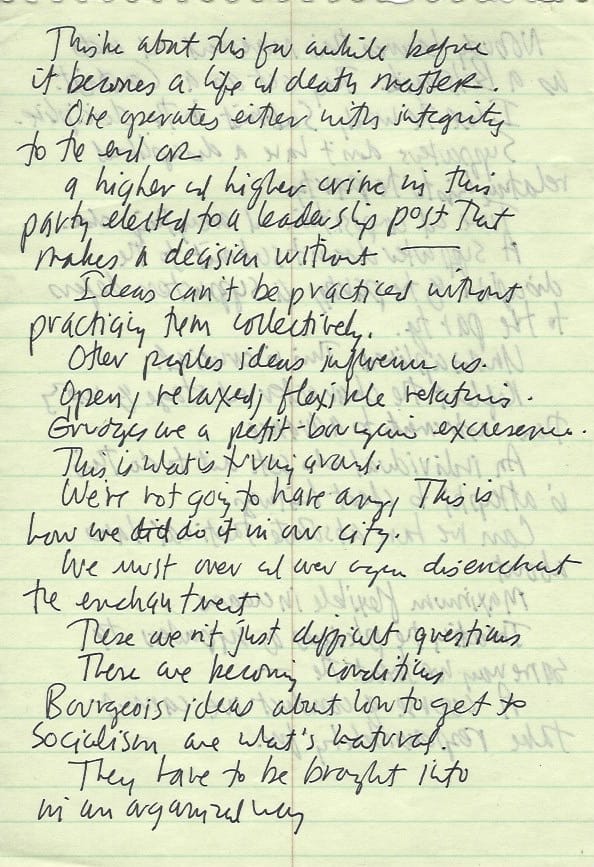 Think about this for awhile before
it becomes a life and death matter.
One operates either with integrity
to the end or
a higher and higher crime in this
party elected to a leadership post that
makes a decision without ——
Ideas can't be practiced without
practicing them collectively.
Other peoples ideas influence us.
Open, relaxed, flexible relations.
Grudges are a petit-bourgeois excresence.
This is what's turning around.
We're not going to have any, This is
how we did do it in our city.
We must over and over again disenchant
the enchantment
These aren't just difficult questions
These are becoming conditions
Bourgeois ideas about how to get to
Socialism are what's natural.
They have to be brought into
in an organized way